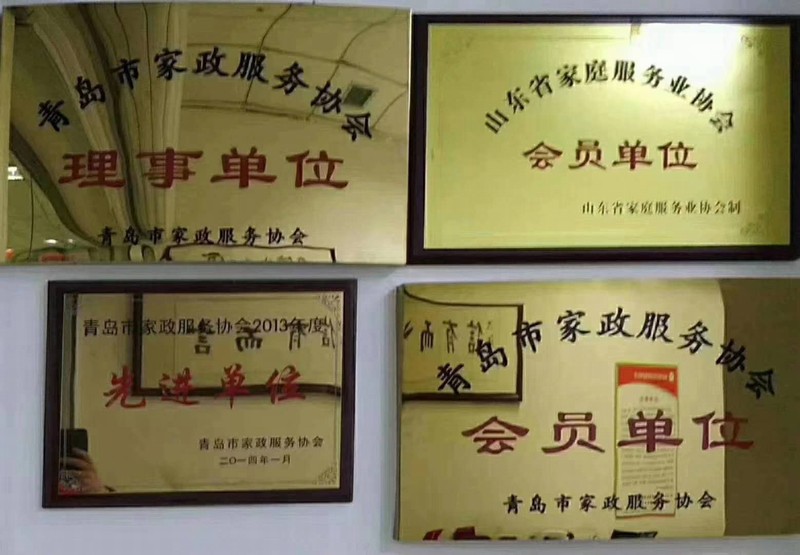 青岛市家政服务协会
理事单位
青岛市家政服务协会
山东省家庭服务业协会
会员单位
山东省家庭服务业协会制
青岛市家政服务协会2013年度
先进单位
青岛市家政服务协会
二〇一四年一月
青岛市家政服务协会
会员单位
青岛市家政服务协会